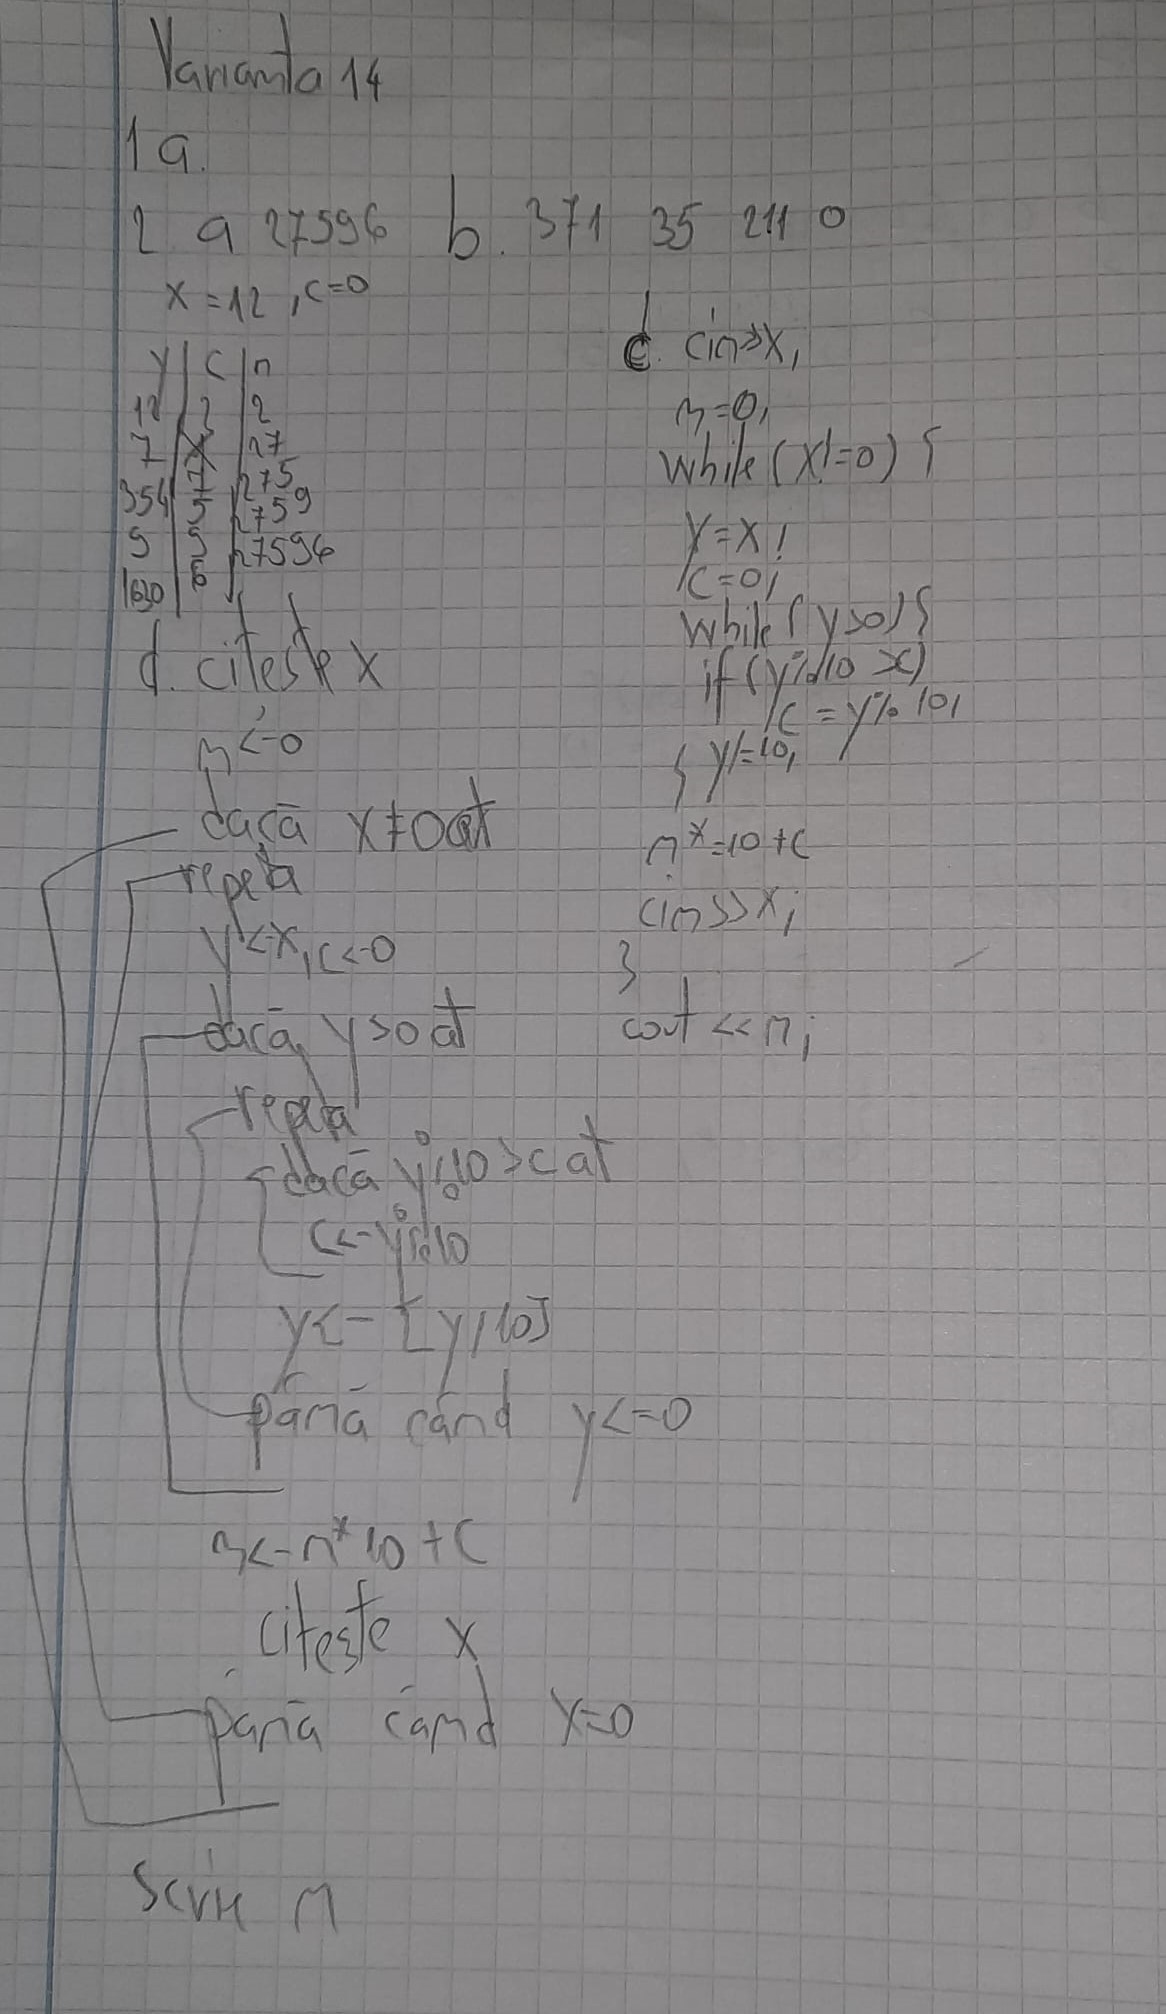 Varianta 14
1 a.
2 a 27596 b. 371 35 211 0
x = 12, c=0
y | c | n
12 | 2 | 2
7 | 7 | 27
354 | 5 | 275
9 | 9 | 2759
1630 | 6 | 27596
d. citește x
n<-0
dacă x≠0 at
repetă
y<-x, c<-0
dacă y>0 at
repetă
dacă y%10>c at
c<-y%10
y<-[y/10]
până când y<=0
n<-n*10+c
citește x
până când x=0
scrie n
c. cin>>x;
n=0;
while(x!=0) {
y=x;
c=0;
while(y>0){
if(y%10>c)
c=y%10;
y/=10;
}
n*=10+c
cin>>x;
}
cout<<n;